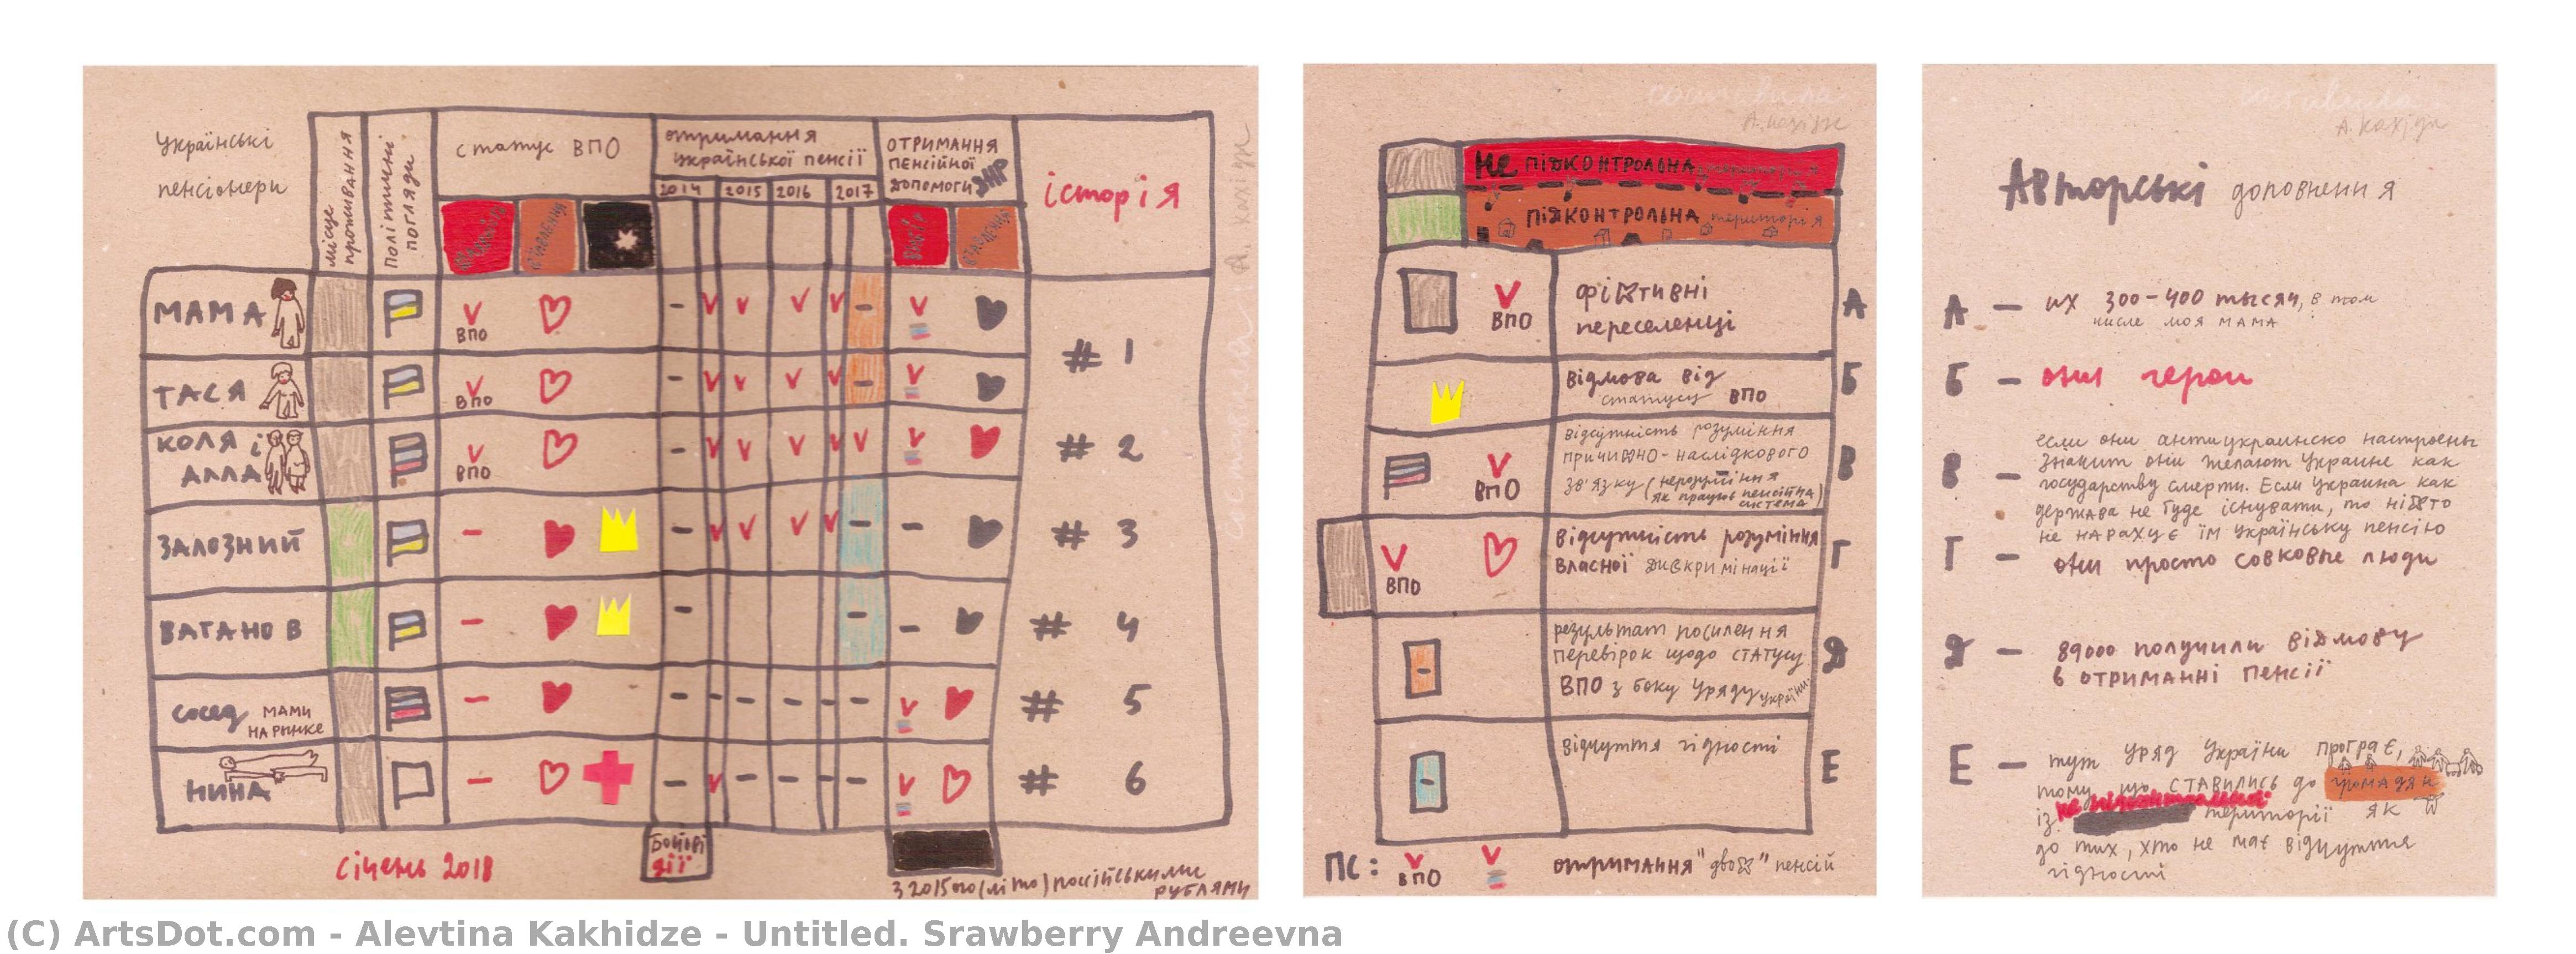 Українські
пенсіонери
місце
проживання
Політични
погляди
статус ВПО
отримання
української пенсії
2014 2015 2016 2017
ОТРИМАННЯ
ПЕНСІЙНОЇ
ДОПОМОГИ
історія
МАМА
ВПО
ТАСЯ
ВПО
# 1
КОЛЯ і
АЛЛА
ВПО
# 2
ЗАЛОЗНИЙ
# 3
ВАГАНОВ
# 4
сосед МАМИ
НА РЫНКЕ
# 5
НИНА
# 6
Бойові
дії
січень 2018
З 2015го (літо) російськими
РУБЛЯМИ
составила
НЕ ПІДКОНТРОЛЬНА територія
ПІДКОНТРОЛЬНА територія
ВПО
фіктивні
переселенці
А
відмова від
статусу ВПО
Б
ВПО
відсутність розуміння
причинно-наслідкового
зв'язку (нерозуміння
як працює пенсійна
система)
В
ВПО
відсутність розуміння
власної дискримінації
Г
результат посилення
перевірок щодо статусу
ВПО з боку Уряду України
Д
відчуття гідності
Е
ПС: ВПО отримання "двох" пенсій
составила
Авторські доповнення
А — их 300-400 тысяч, в том
числе моя МАМА
Б — они герои
В — если они антиукраинско настроены
значит они желают Украине как
государству смерти. Если Украина как
держава не буде існувати, то ніхто
не нарахує їм Українську пенсію
Г — они просто совковые люди
Д — 89000 получили відмову
в отриманні пенсії
Е — тут уряд України програє,
тому що ставились до громадян
із не підконтрольної території як
до тих, хто не має відчуття
гідності
(C) ArtsDot.com - Alevtina Kakhidze - Untitled. Srawberry Andreevna